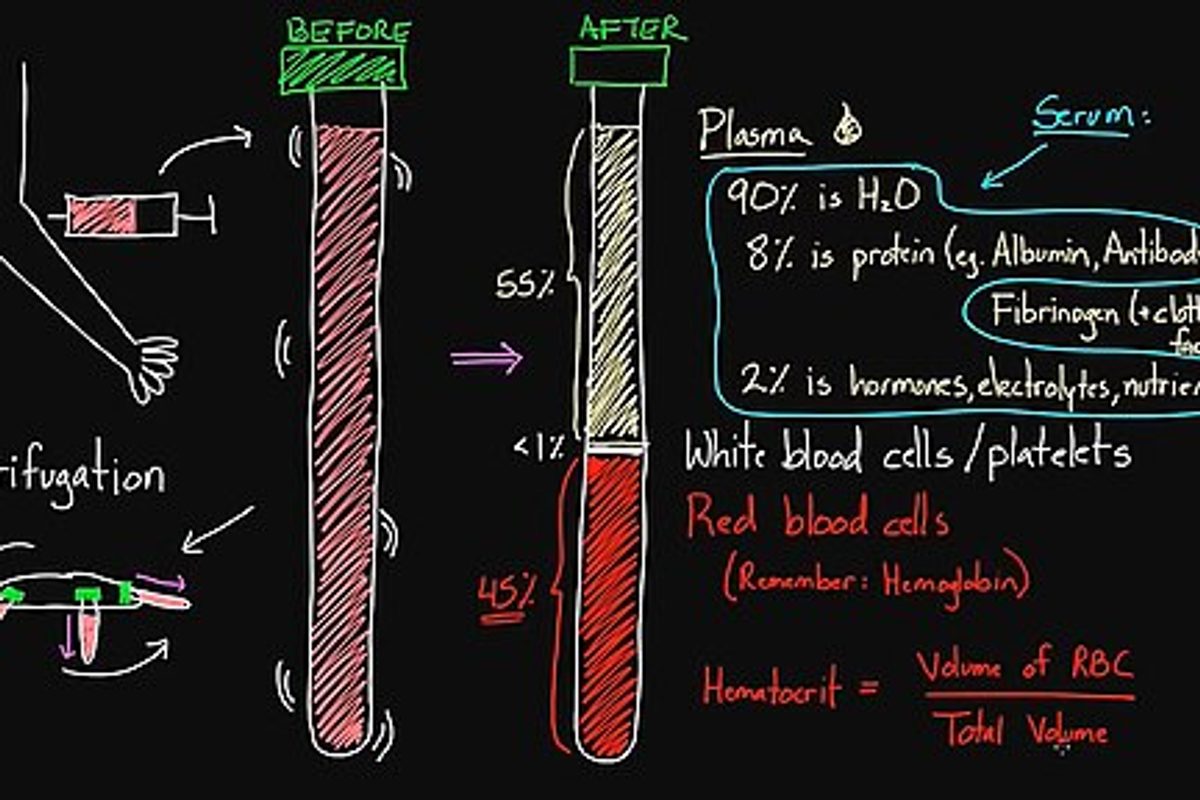 BEFORE
AFTER
Plasma
Serum:
90% is H₂O
8% is protein (eg. Albumin, Antibod
Fibrinogen (+clott
fac
2% is hormones, electrolytes, nutrien
55%
<1%
White blood cells/platelets
rifugation
Red blood cells
(Remember: Hemoglobin)
45%
Hematocrit = Volume of RBC
Total Volume